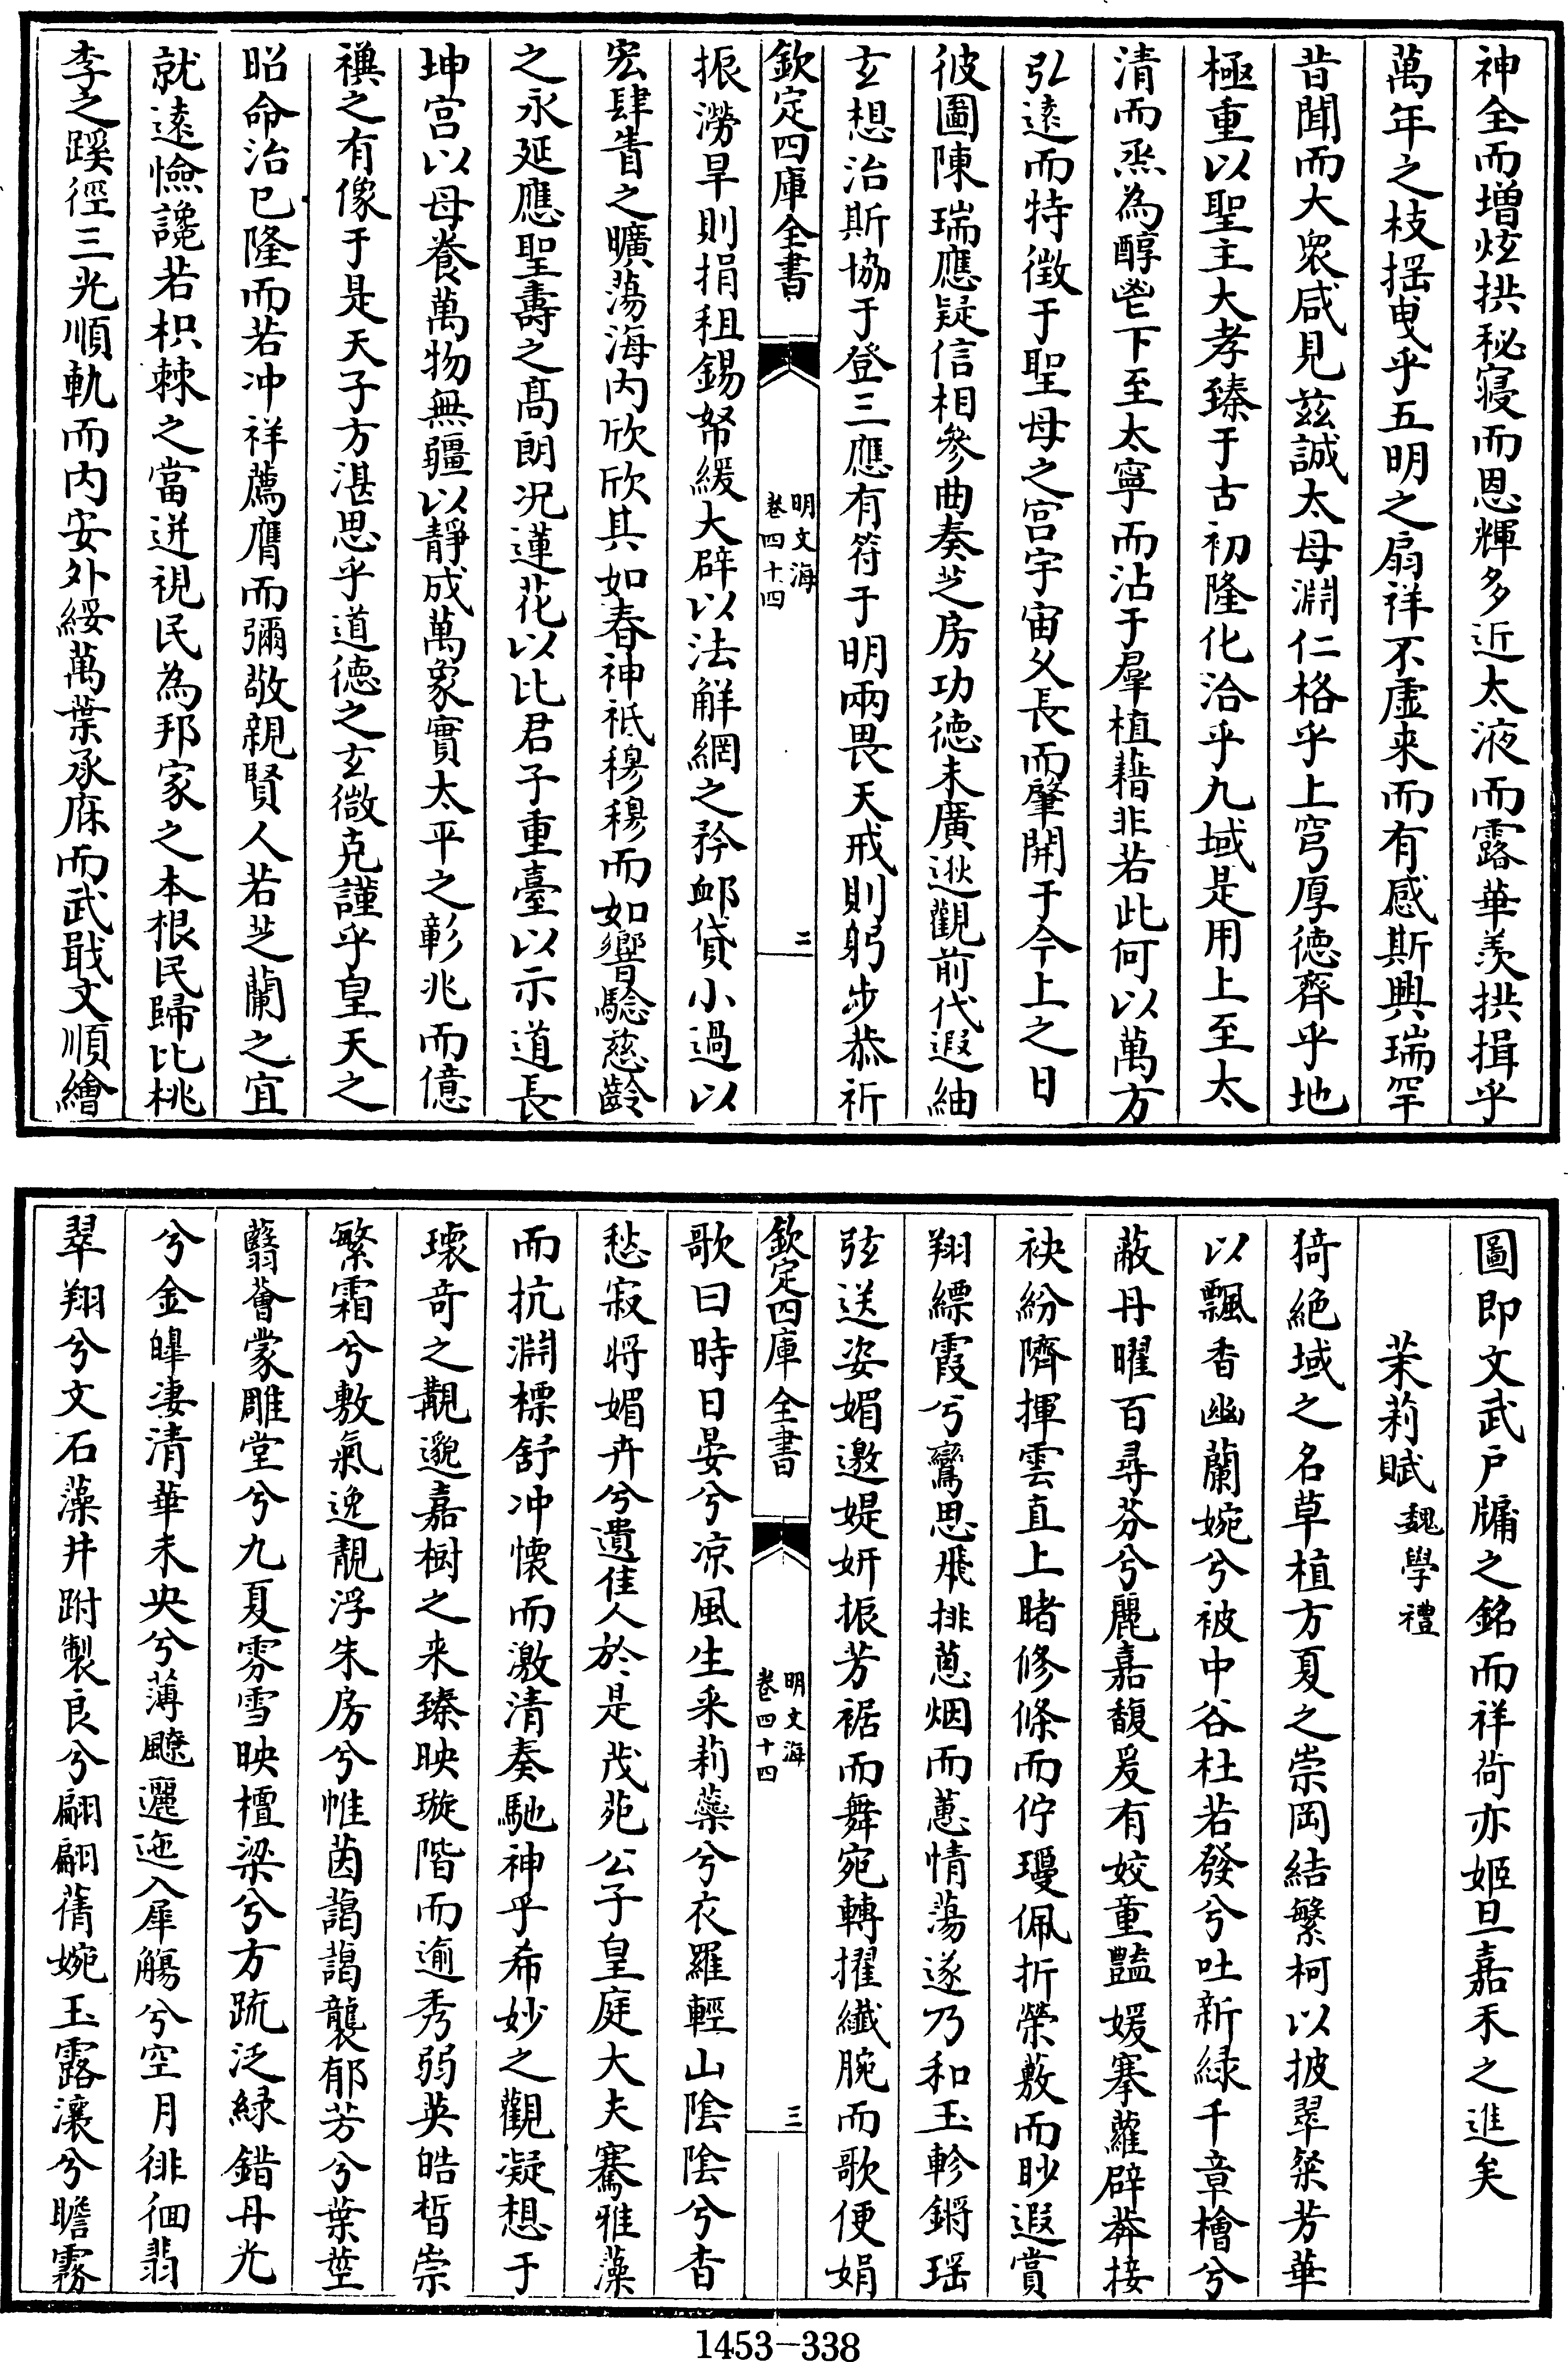 神全而増炫拱秘寝而恩輝多近太液而露華羨拱揖乎
萬年之枝揺曳乎五明之扇祥不虚来而有感斯興瑞罕
昔聞而大衆咸見兹誠太母淵仁格乎上穹厚徳齊乎地
極重以聖主大孝臻于古初隆化洽乎九域是用上至太
清而烝為醇鬯下至太寧而沾于羣植藉非若此何以萬方
弘遠而特徴于聖母之宫宇宙乆長而肇開于今上之日
彼圖陳瑞應疑信相參曲奏芝房功徳未廣逖觀前代遐紬
玄想治斯協于登三應有符于明兩畏天戒則躬步恭祈
欽定四庫全書
明文海
卷四十四
二
振澇旱則捐租錫帑緩大辟以法觧網之矜䘏貸小過以
宏肆眚之曠蕩海内欣欣其如春神祗穆穆而如響驗慈齡
之永延應聖壽之髙朗况蓮花以比君子重臺以示道長
坤宫以母養萬物無疆以靜成萬象實太平之彰兆而億
禩之有像于是天子方湛思乎道徳之玄微克謹乎皇天之
昭命治已隆而若冲祥薦膺而彌敬親賢人若芝蘭之宜
就逺憸讒若枳棘之當迸視民為邦家之本根民歸比桃
李之蹊徑三光順軌而内安外綏萬葉承庥而武戢文順繪
圖即文武户牖之銘而祥荷亦姬旦嘉禾之進矣
茉莉賦魏學禮
猗絶域之名草植方夏之崇岡結繁柯以披翠粲芳華
以飄香幽蘭婉兮被中谷杜若發兮吐新緑千章檜兮
蔽丹曜百尋芬兮麗嘉馥爰有姣童豔媛搴蘿辟莽接
袂紛隮揮雲直上睹修條而佇瓊佩折榮敷而眇遐賞
翔縹霞兮鸞思飛排蔥烟而蕙情蕩遂乃和玉軫鏘瑶
弦送姿媚邀媞妍振芳裾而舞宛轉擢纖腕而歌便娟
欽定四庫全書
明文海
卷四十四
三
歌曰時日晏兮凉風生采莉蘂兮衣羅輕山陰陰兮杳
愁寂將媚卉兮遺佳人於是茂苑公子皇庭大夫騫雅藻
而抗淵標舒冲懷而激清奏馳神乎希妙之觀凝想于
瓌竒之覯邈嘉樹之来臻映璇階而逾秀弱英皓晳崇
繁霜兮敷氣逸靚浮朱房兮帷茵藹藹襲郁芳兮葉莖
蘙薈蒙雕堂兮九夏雰雪映檀梁兮方疏泛緑錯丹光
兮金皞凄清華未央兮薄飉邐迤入犀觴兮空月徘徊翡
翠翔兮文石藻井跗製良兮翩翩蒨婉玉露瀼兮瞻霧
1453-338